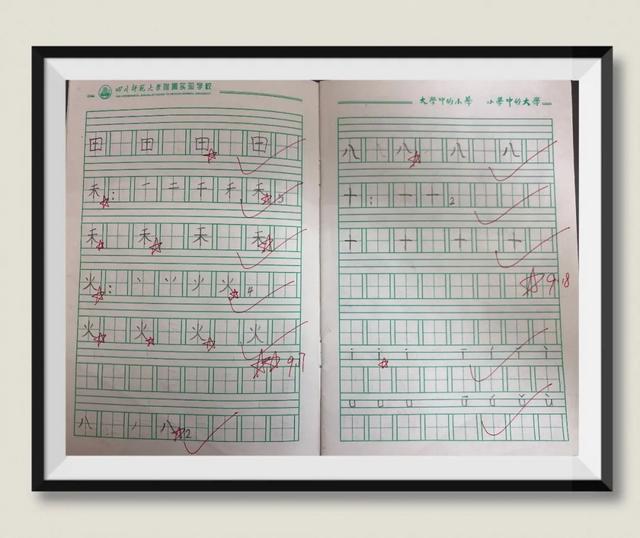 四川师范大学附属实验学校
田 田 田 田
禾: 一 二 千 禾 禾 5
禾 禾 禾 禾
火: 丶 丷 少 火 4
火 火 火 火
9.7
八 丿 八 2
大学中的小学 小学中的大学
八 八 八 八
十: 一 十 2
十 十 十 十
9.18
i i i ī í ǐ ì
u u u ū ú ǔ ù